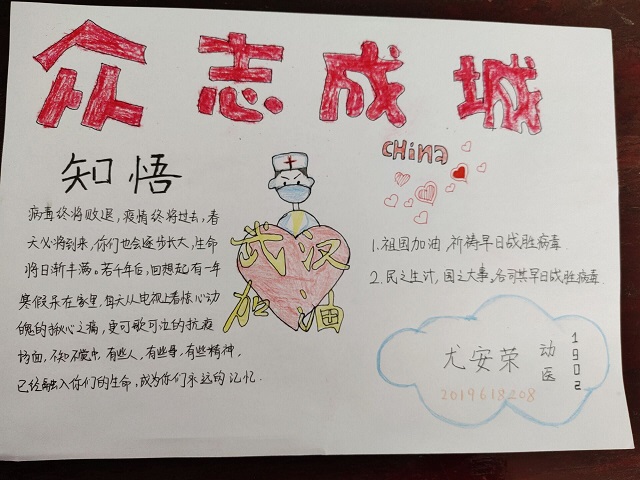 众志成城
CHINA
知悟
病毒终将败退,疫情终将过去,春
天必将到来,你们也会逐步长大,生命
将日渐丰满。若千年后,回想起有一年
寒假呆在家里,每天从电视上看惊心动
魄的揪心之痛,更可歌可泣的抗疫
场面,不知不觉中有些人,有些事,有些精神,
已经融入你们的生命,成为你们永远的记忆.
武汉
加油
1.祖国加油,祈祷早日战胜病毒.
2.民之生计,国之大事,各司其早日战胜病毒.
尤安荣
动医
1902
2019618208